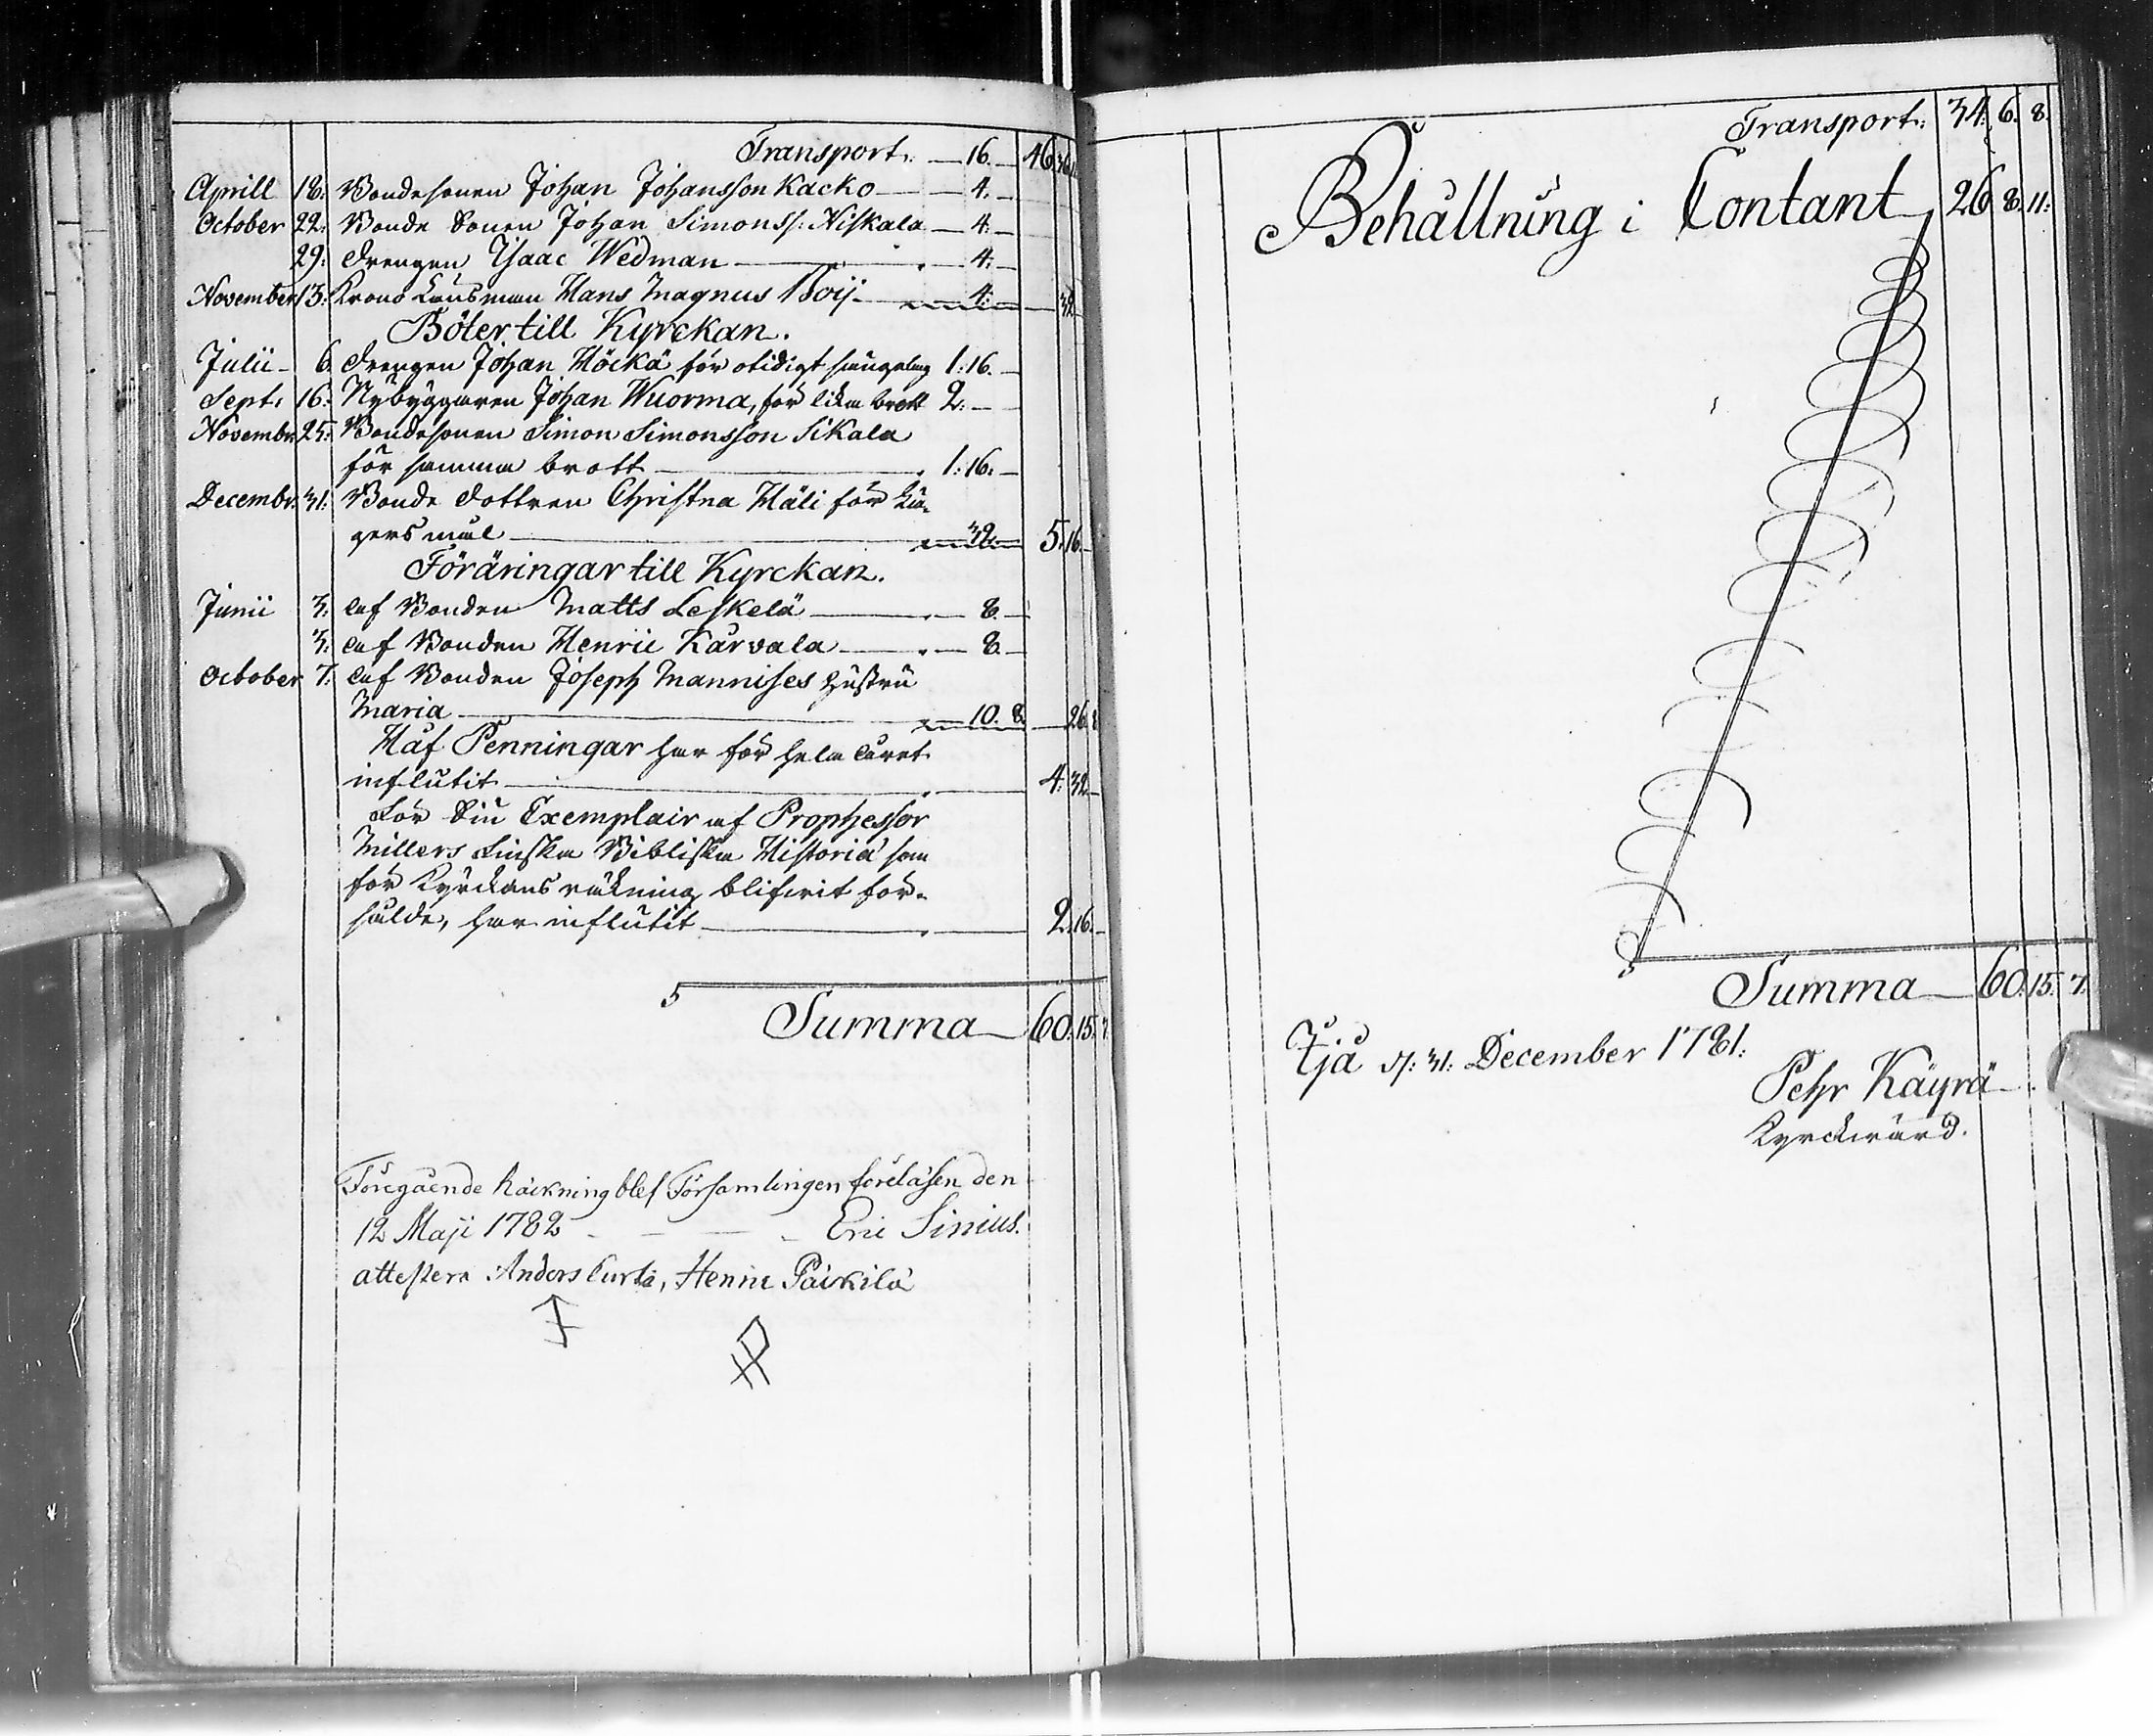 Transport. — 16. — 46.
Aprill 18: Bondesonen Johan Johansson Kacko — 4. —
October 22: Bonde Sonen Johan Simonss: Niskala — 4. —
29: Drengen Isaac Wedman — 4: —
November 13: Krono Länsman Hans Magnus Boij — 4: — 32
Böter till Kyrckan.
Julii 6. Drengen Johan Höckä för otidigt sängelag 1: 16. —
Sept: 16: Nybyggaren Johan Wuorma, för lika brott 2: —
Novembr. 25: Bondesonen Simon Simonsson Sikala
för samma brott — 1: 16. —
Decembr. 31: Bonde dottren Christna Häli för Lä-
gersmål — 32. — 5. 16. —
Föräringar till Kyrckan.
Junii 3. af Bonden Matts Leskelä — 8. —
3. af Bonden Henric Karvala — 8. —
October 7. af Bonden Joseph Mannises hustru
Maria — 10. 8. — 26. 8
Håf Penningar har för hela året
influtit — 4. 32. —
För Siu Exemplair af Prophessor
Millers Finska Bibliska Historia som
för Kyrckans räkning blifwit för-
sålde, har influtit — 2. 16. —
Summa — 60. 15. 7.
Föregående Räckning blef Församlingen föreläsen den
12 Maji 1782 - — - Eric Sinius.
attestera Anders Curti, Henric Päickilä
Transport. 34. 6. 8.
Behållning i Contant 26 8. 11.
Summa — 60. 15. 7.
Ijå d: 31: December 1781.
Pehr Käyrä
Kyrckwärd.